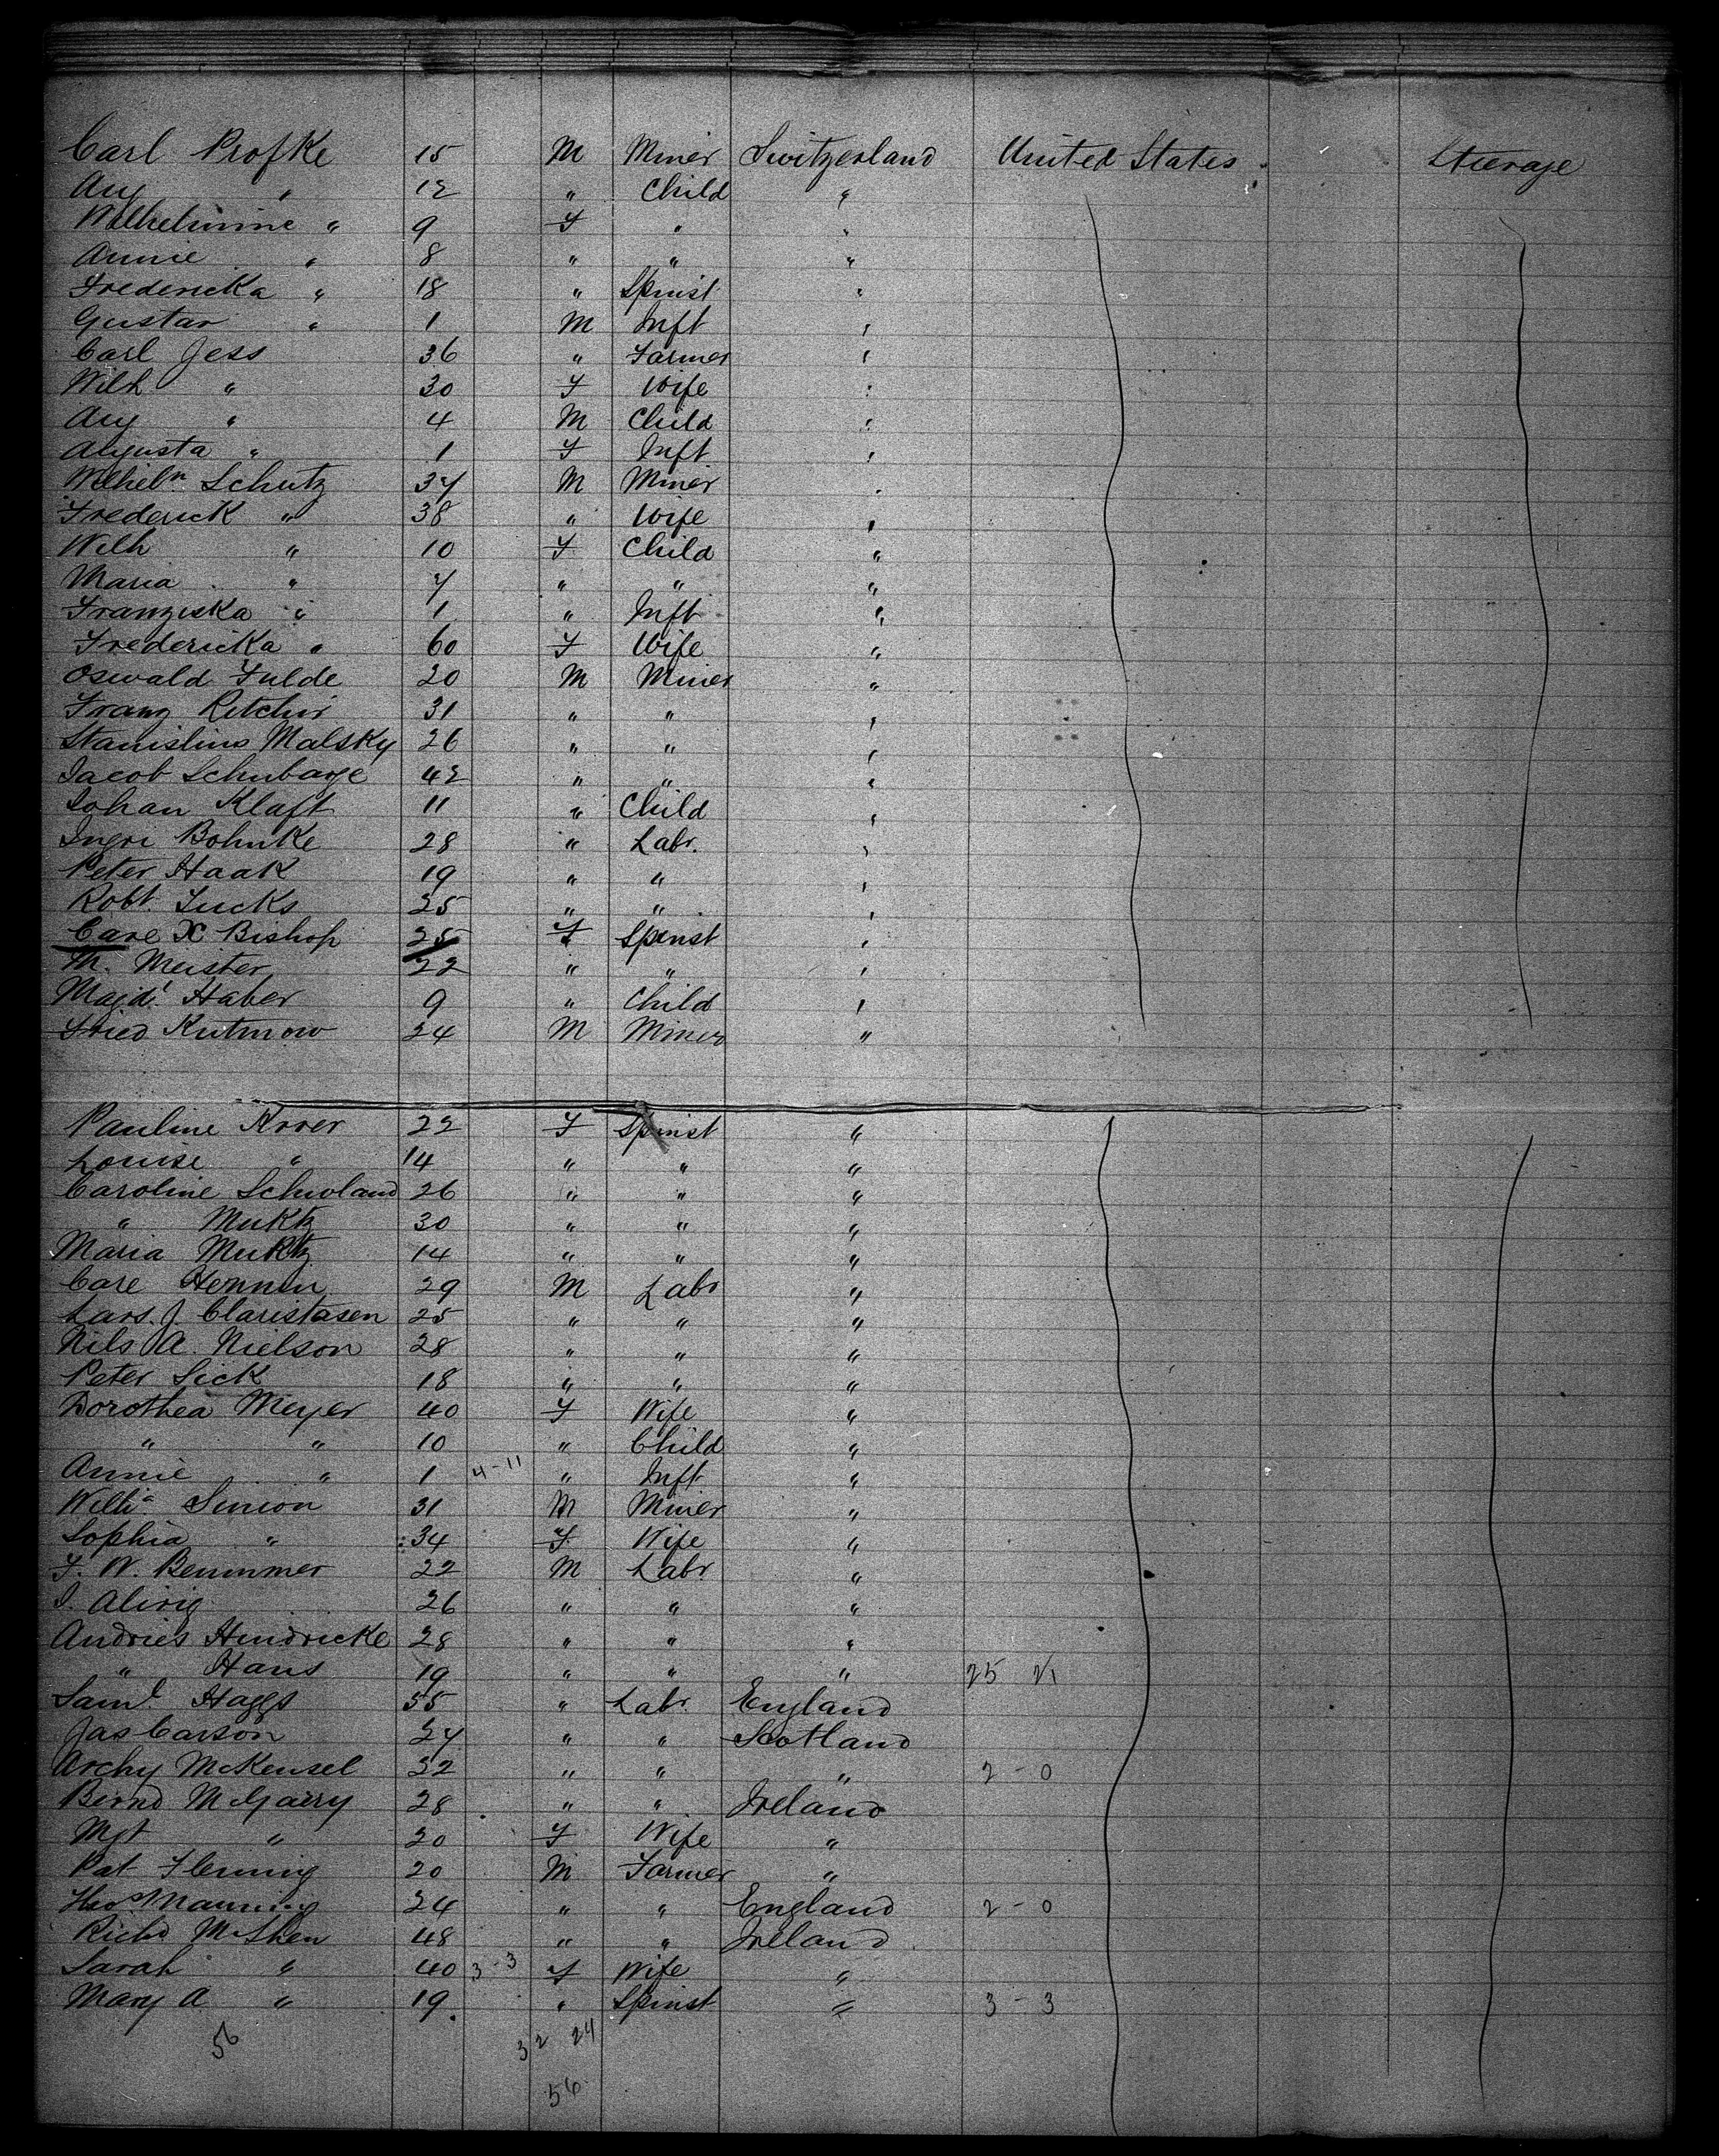 Carl Profke 15 M Miner Switzerland United States Steerage
Aug " 12 " Child "
Wilhelmine " 9 F " "
Annie " 8 " " "
Fredericka " 18 " Spinst "
Gustav " 1 M Inft "
Carl Jess 36 " Farmer "
Wilh " 30 F Wife "
Aug " 4 M Child "
Augusta " 1 F Inft "
Wilhelm Schutz 37 M Miner "
Frederick " 38 " Wife "
Wilh " 10 F Child "
Maria " 7 " " "
Franziska " 1 " Inft "
Fredericka " 60 F Wife "
Oswald Fulde 20 M Miner "
Franz Ritchir 31 " " "
Stanislins Malsky 26 " " "
Jacob Schubarge 42 " " "
Johan Klaft 11 " Child "
Bohnke 28 " Labr. "
Peter Haak 19 " " "
Robt. Lucks 25 " " "
Care X Bishop 25 F Spinst "
M. Meister 22 " " "
Magd. Haber 9 " Child "
Fried Kutmow 24 M Miner "
Pauline Krrer 22 F Spinst "
Louise " 14 " " "
Caroline Schwland 26 " " "
" Muktz 30 " " "
Maria Muktz 14 " " "
Care Hemmin 29 M Labr "
Lars. J Claristasen 25 " " "
Nils A. Nielson 28 " " "
Peter Sick 18 " " "
Dorothea Meyer 40 F Wife "
" " 10 " Child "
Annie " 1 4-11 " Inft "
Willia Simon 31 M Miner "
Sophia " 34 F Wife "
F. W. Bemmmer 22 M Labr "
J. Alirig 26 " " "
Andries Hindricke 28 " " "
" Hans 19 " " " 25 21
Saml Haggs 55 " Labr. England
Jas Carson 27 " " Scotland
Archy McKensel 32 " " " 2-0
Bernd McGairy 28 " " Ireland
Mgt " 20 F Wife "
Pat Fleming 20 M Farmer "
Thos Manning 24 " " England 2-0
Richd McShen 48 " " Ireland
Sarah " 40 3-3 F Wife "
Mary A " 19. " Spinst " 3-3
56 32 24
56